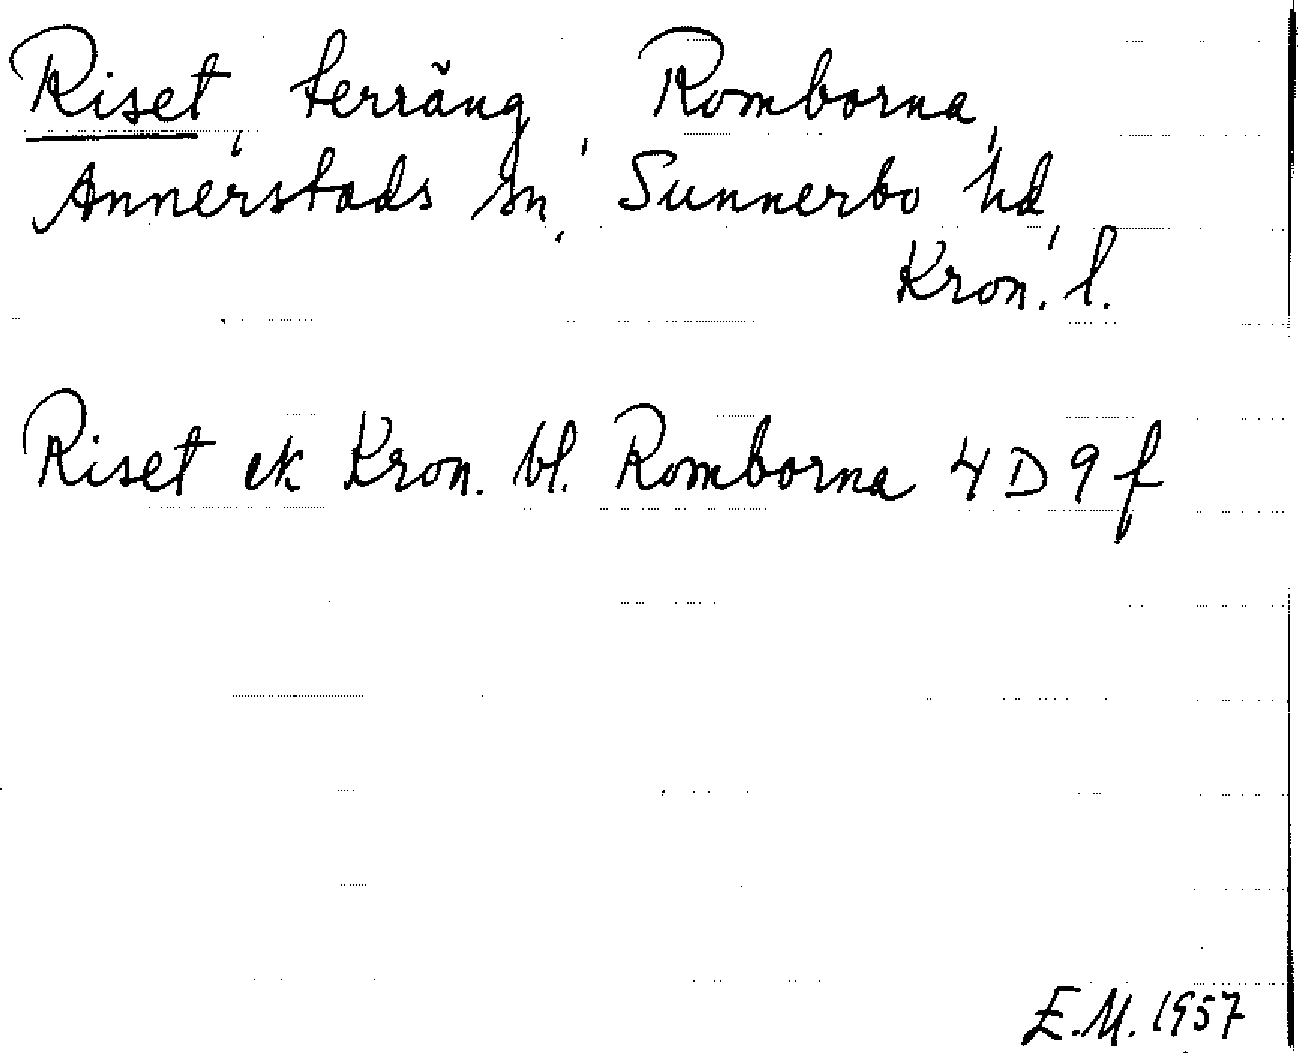 Riset, terräng, Romborna,
Annerstads sn, Sunnerbo hd,
Kron. l.
Riset ek Kron. bl. Romborna 4 D 9 f
E.M. 1957